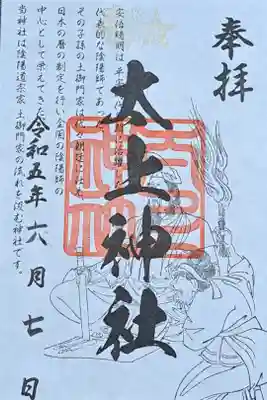 奉拝
太上神社
安倍晴明は平安時代中期に活躍した
代表的な陰陽師であっ
その子孫の土御門家は代々朝廷に仕え
日本の暦の制定を行い全国の陰陽師の
中心として栄えてきた
当神社は陰陽道宗家 土御門家の流れを汲む神社です。
令和五年六月七日